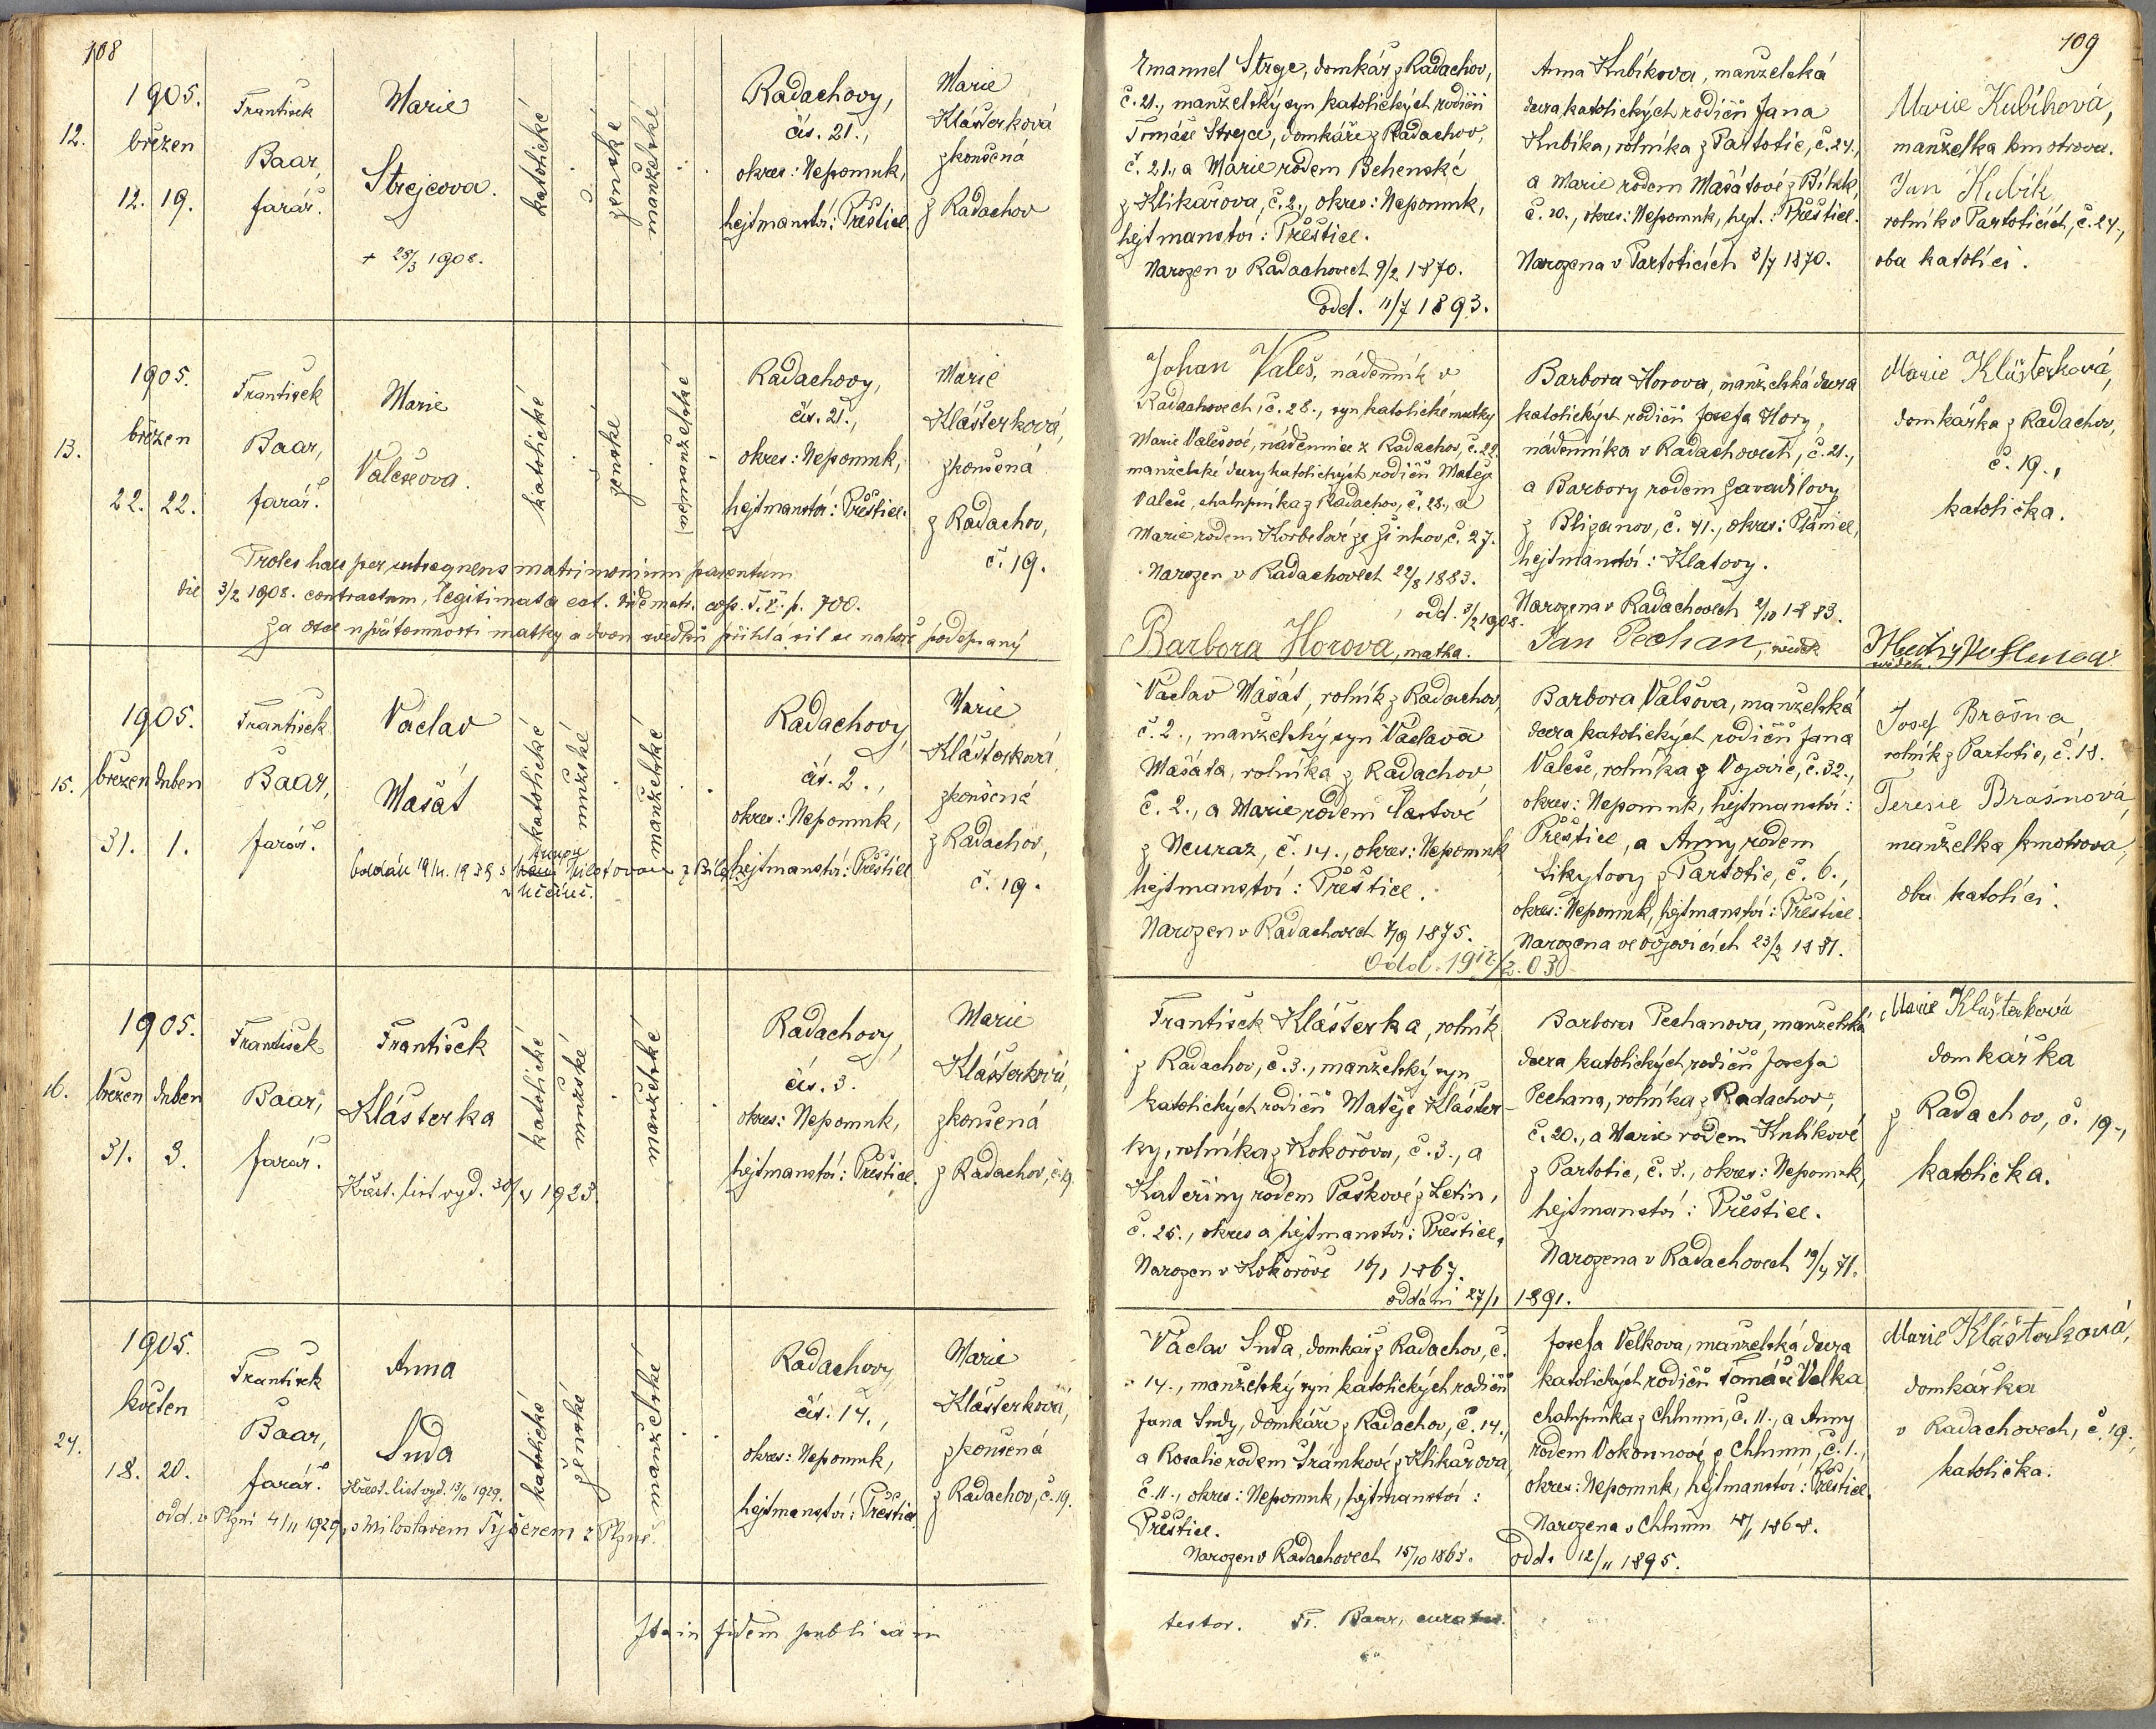 108
1905.
12.
březen
12. 19.
František
Baar,
farář.
Marie
Strejcova.
+ 28/3 1908.
katolické
ženské
manželské
Radachovy,
čís. 21.,
okres: Nepomuk,
hejtmanství: Přeštice.
Marie
Klásterková
zkoušená
z Radachov
1905.
13.
březen
22. 22.
František
Baar,
farář.
Marie
Valešova.
katolické
ženské
(ne)manželské
Radachovy,
čís. 21.,
okres: Nepomuk,
hejtmanství: Přeštice.
Marie
Klásterková,
zkoušená
z Radachov,
č. 19.
Proles haec per subsequens matrimonium parentum
die 3/2 1908. contractum, legitimata est. Vide matr. cop. T. V. p. 700.
Za otce v přítomnosti matky a dvou svědků přihlásil se nahoře podepsaný
1905.
15.
březen duben
31. 1.
František
Baar,
farář.
Václav
Mašát
katolické
mužské
manželské
Radachovy,
čís. 2.,
okres: Nepomuk,
hejtmanství: Přeštice
Marie
Klásterková,
zkoušená
z Radachov,
č. 19.
1905.
16.
březen duben
31. 3.
František
Baar,
farář.
František
Klásterka
Křest. list vyd. 30/4 1923.
katolické
mužské
manželské
Radachovy,
čís. 3.
okres: Nepomuk,
hejtmanství: Přeštice.
Marie
Klásterková,
zkoušená
z Radachov, č. 19.
1905.
24.
květen
18. 20.
František
Baar,
farář.
Anna
Suda
Křest. list vyd. 13/10 1929.
odd. v Plzni 4/11 1929, s Miloslavem Tyšerem z Plzně.
katolické
ženské
manželské
Radachovy
čís. 14.,
okres: Nepomuk,
hejtmanství: Přeštice.
Marie
Klásterková,
zkoušená
z Radachov, č. 19.
Ita in fidem publicam
109
Emanuel Strejc, domkář z Radachov,
č. 21., manželský syn katolických rodičů
Tomáše Strejce, domkáře z Radachov,
č. 21., a Marie rodem Behenské
z Klikařova, č. 2., okres: Nepomuk,
hejtmanství: Přeštice.
Narozen v Radachovech 9/2 1870.
odd. 11/7 1893.
Anna Kubíkova, manželská
dcera katolických rodičů Jana
Kubíka, rolníka z Partotic, č. 24.,
a Marie rodem Mašátové z Bílek,
č. 10., okres: Nepomuk, hejt.: Přeštice.
Narozena v Partoticích 3/7 1870.
Marie Kubíková,
manželka kmotrova.
Jan Kubík
rolník v Partoticích, č. 24.,
oba katolíci.
Johan Valeš, nádenník v
Radachovech, č. 28., syn katolické matky
Marie Valešové, nádennice z Radachov, č. 22.
manželské dcery katolických rodičů Matěje
Valeše, chalupníka z Radachov, č. 28., a
Marie rodem Korbelové ze Žinkov, č. 27.
Narozen v Radachovech 22/8 1883.
odd. 3/2 1908.
Barbora Horova, manželská dcera
katolických rodičů Josefa Hory,
nádenníka v Radachovech, č. 21.,
a Barbory rodem Zavadilovy
z Blizanov, č. 41., okres: Plánice,
hejtmanství: Klatovy.
Narozena v Radachovech 2/10 1883.
Marie Klásterková,
domkářka z Radachov,
č. 19.,
katolička.
Barbora Horova, matka.
Jan Pechan, svědek
svědek.
Václav Mašát, rolník z Radachov,
č. 2., manželský syn Václava
Mašáta, rolníka z Radachov
č. 2., a Marie rodem Častové
z Neuraz, č. 14., okres: Nepomuk
hejtmanství: Přeštice.
Narozen v Radachovech 7/9 1875.
Odd. 1912/2.03
Barbora Valšova, manželská
dcera katolických rodičů Jana
Valeše, rolníka z Vojovic, č. 32.,
okres: Nepomuk, hejtmanství:
Přeštice, a Anny rodem
Sikytovy z Partotic, č. 6.,
okres: Nepomuk, hejtmanství: Přeštice.
Narozena ve Vojovicích 23/2 1881.
Josef Brašna
rolník z Partotic, č. 18.
Terezie Brašnová
manželka kmotrova,
oba katolíci.
František Klásterka, rolník
z Radachov, č. 3., manželský syn
katolických rodičů Matěje Kláster-
ky, rolníka z Kokořova, č. 3., a
Kateřiny rodem Paškové z Letin,
č. 25., okres a hejtmanství: Přeštice,
Narozen v Kokořově 16/1 1867.
oddáni 27/1 1891.
Barbora Pechanova, manželská
dcera katolických rodičů Josefa
Pechana, rolníka z Radachov,
č. 20., a Marie rodem Kubíkové
z Partotic, č. 8., okres: Nepomuk,
hejtmanství: Přeštice.
Narozena v Radachovech 19/4 71.
Marie Klásterková
domkářka
z Radachov, č. 19.,
katolička.
Václav Suda, domkář z Radachov, č.
14., manželský syn katolických rodičů
Jana Sudy, domkáře z Radachov, č. 14.,
a Rosalie rodem Srámkové z Klikařova,
č. 11., okres: Nepomuk, hejtmanství:
Přeštice.
Narozen v Radachovech 15/10 1865.
Josefa Velkova, manželská dcera
katolických rodičů Tomáše Velka
chalupníka z Chlumu, č. 11., a Anny
rodem Vokounové z Chlumu, č. 1.,
okres: Nepomuk, hejtmanství: Přeštice.
Narozena v Chlumu 18/1 1868.
odd. 12/11 1895.
Marie Klásterková,
domkářka
v Radachovech, č. 19.,
katolička.
testor. Fr. Baar, curatus.